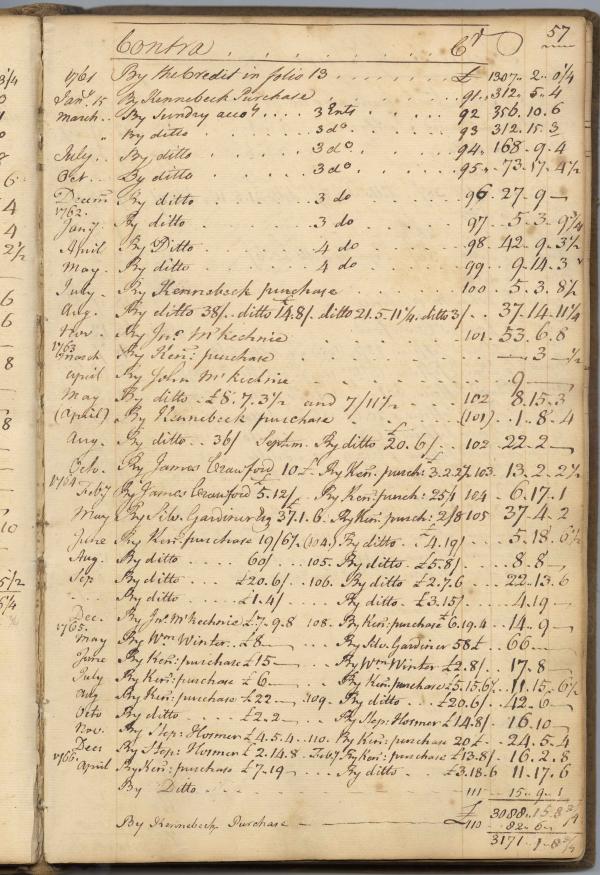 57
Contra . . . . . . . Cr
1761 By the Credit in folio 13 . . . . £ 1307.. 2.. 0 1/4
Jany. 15 By Kennebeck Purchase . . . . 91.. 312.. 5.. 4
March.. By Sunday accots. . . . 3 Ents . . . 92 356.10.6
" By ditto . . . . 3 do. . . . 93 312.15.3
July.. By ditto . . . . 3 do. . . . 94.. 168.9.4
Oct.. By ditto . . . . 3 do. . . . 95.. 73.17.4 1/2
Decemr. By ditto . . . . 3 do . . . 96 27.9—
1762.
Jany. By ditto . . . . 3 do . . . 97 5.3.9 1/4
April By Ditto . . . . 4 do . . . 98 42.9.3 1/2
May. By ditto . . . . 4 do . . . 99 9.14.3
July. By Kennebeck purchase . . . . 100 5.3.8 1/2
Aug. By ditto 38/. ditto £14.8/. ditto 21.5.11 1/4. ditto 3/ . . 37.14.11 1/4
Nov. By Jno. McKechnie . . . . 101 53.6.8
1763
March By Ken: purchase . . . . — 3 — 1/2
April By John McKechnie . . . . 9 —
May By ditto £8.7.3 1/2 and 7/11 1/2 . . . 102 8.15.3
(April) By Kennebeck purchase . . . (101) .1.8.4
Aug. By ditto .. 36/ Septm. By ditto £20.6/ . . 102 22.2—
Octo. By James Crawford 10£. By Ken: purch: 3.2.2 1/2 103. 13.2.2 1/2
1764
Feby By James Crawford £5.12/ .. By Ken: purch: 25/1 104 . 6.17.1
May By Silv. Gardiner Esq 37.1.6. By Ken: purch: 2/8 105 37.4.2
June By Ken: purchase 19/6 1/2. (104.) By ditto . £4.19/ . . . 5.18.6 1/2
Aug. By ditto . . . 60/ . . 105. By ditto . £5.8/ . . . 8.8—
Sep By ditto . . . £20.6/ . . 106. By ditto . £2.7.6 . . 22.13.6
By ditto . . . £1.4/ . . By ditto . £3.15/ . . . 4.19—
Dec. By Jno. McKechnie £7.9.8 108. By Ken: purchase £6.19.4 . . 14.9—
1765.
May By Wm Winter.. £8 — . . . By Silv. Gardiner 58£ . . 66—
June By Ken: purchase £15 — . . . By Wm Winter £2.8/. . 17.8—
July By Ken: purchase £6 — . . . By Ken: purchase £5.15.6 1/2 . 11.15.6 1/2
Aug By Ken: purchase £22 — . 109. By ditto . . £20.6/ . . 42.6—
Octo By ditto . . . £2.2 — . . By Step: Hosmer £14.8/ . 16.10—
Nov. By Step: Hosmer £4.5.4 . 110. By Ken: purchase 20£ . . 24.5.4
Dec By Step: Hosmer £2.14.8 . Feby By Ken: purchase £13.8/ . 16.2.8
1766.
April By Ken: purchase £7.19 — . . By ditto . . £3.18.6 11.17.6
By Ditto . . . . 111 15.9.1
£ 3088.15.8 3/4
By Kennebeck Purchase — — 110 82.6—
3171.1.8 3/4